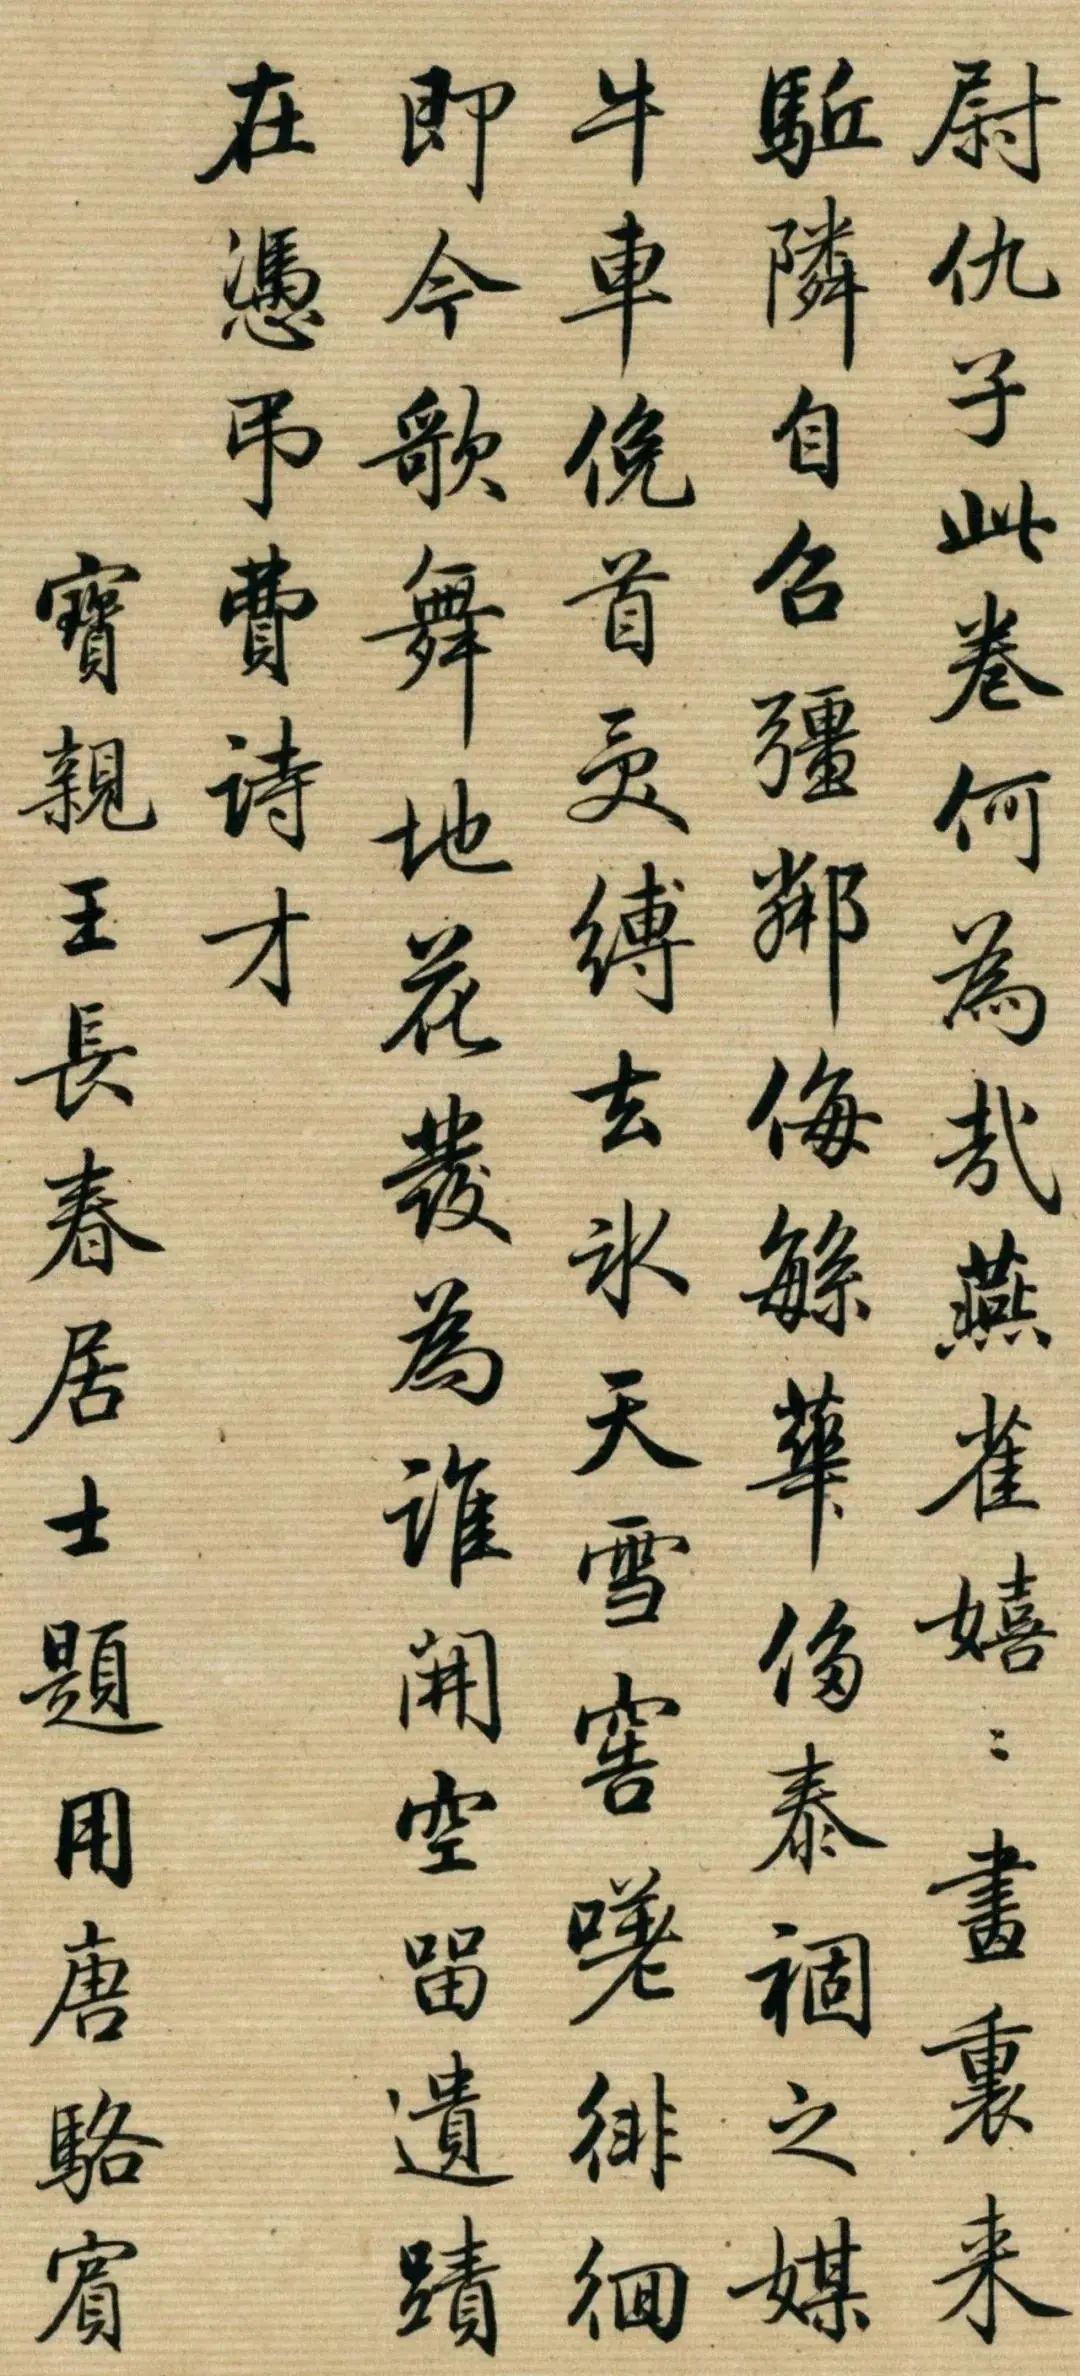 尉仇子此卷何為哉燕雀嬉〻畫裏来
駈隣自召彊鄰侮繁華侈泰禍之媒
牛車俛首受縛去氷天雪窖嘆徘徊
即今歌舞地花發為誰開空留遺蹟
在憑弔費詩才
寶親王長春居士題用唐駱賓